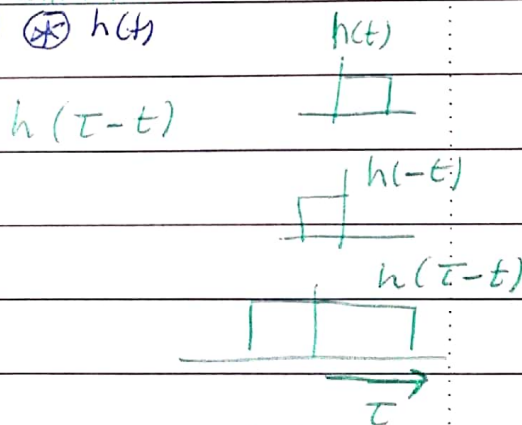 ⊛ h(t)
h(t)
h(τ-t)
h(-t)
h(τ-t)
τ